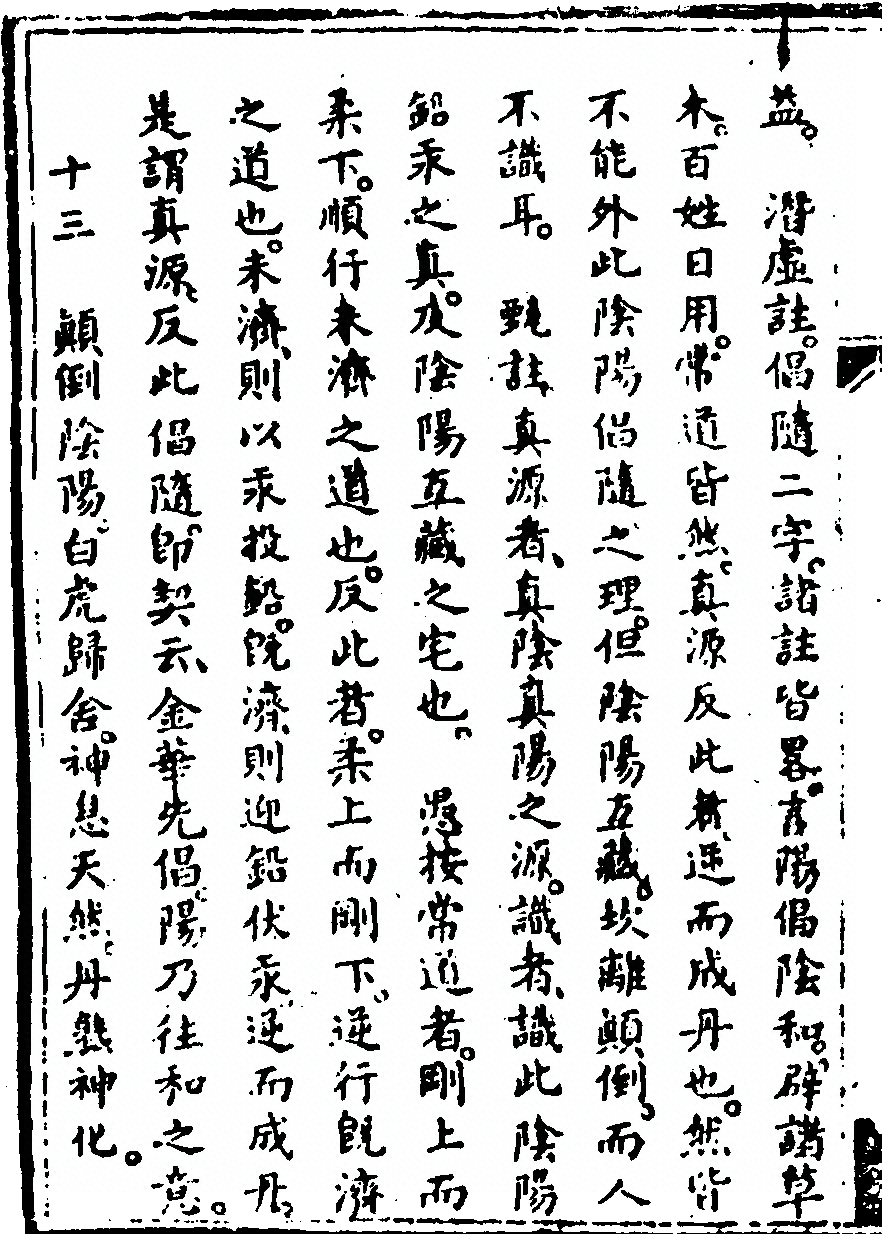 益。　潛虛註。倡隨二字。諸註皆畧。言陽倡陰和。辟諸草
木。百姓日用。常道皆然。真源反此者、逆而成丹也。然皆
不能外此陰陽倡隨之理。但陰陽互藏。坎離顛倒。而人
不識耳。　甄註、真源者、真陰真陽之源。識者、識此陰陽
鉛汞之真。反陰陽互藏之宅也。　愚按常道者。剛上而
柔下。順行未濟之道也。反此者。柔上而剛下。逆行旣濟
之道也。未濟、則以汞投鉛。旣濟、則迎鉛伏汞。逆而成丹。
是謂真源。反此倡隨。卽契云、金華先倡。陽乃往和之意。
十三　顛倒陰陽。白虎歸舍。神息天然。丹熟神化。